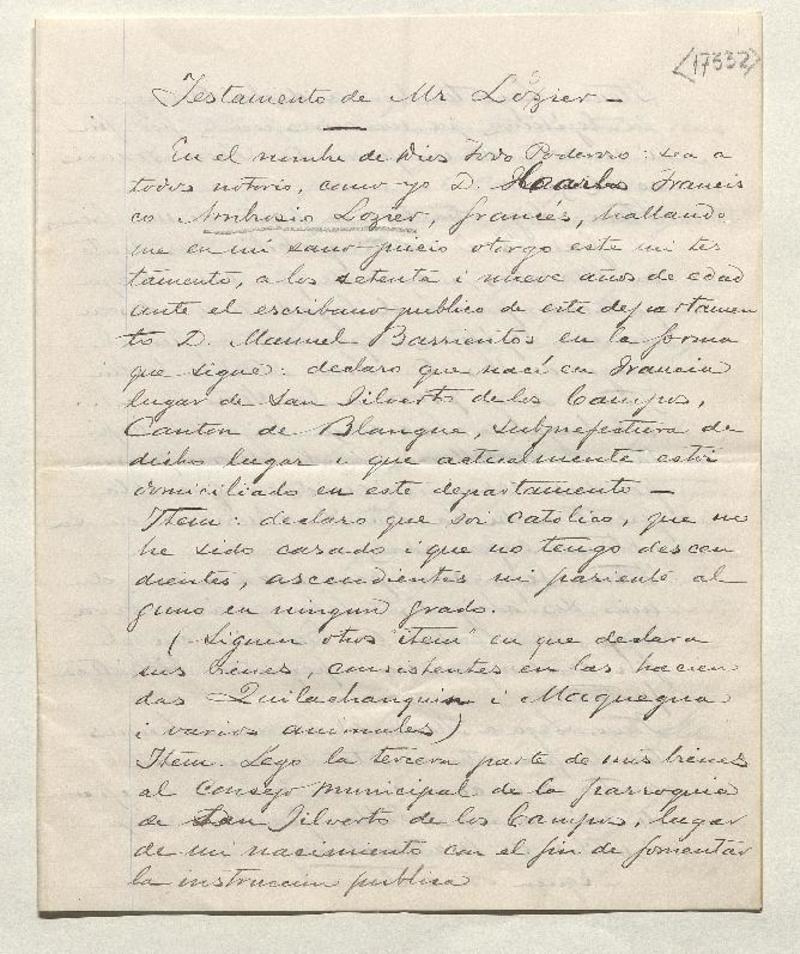 (17332)
Testamento de Mr Lozier —
En el nombre de Dios Todo Poderoso: sea a
todos notorio, como yo D. Carlos Francis
co Ambrosio Lozier, francés, hallando
me en mi sano juicio otorgo este mi tes
tamento, a los setenta i nueve años de edad
ante el escribano publico de este departamen
to D. Manuel Barrientos en la forma
que sigue: declaro que nací en Francia
lugar de San Filverto de los Campos,
Canton de Blangue, subprefectura de
dicho lugar i que actualmente estoi
domiciliado en este departamento —
Item: declaro que soi católico, que no
he sido casado i que no tengo descen
dientes, ascendientes ni pariente al
guno en ningun grado.
(Siguen otros "item" en que declara
sus bienes, consistentes en las hacien
das Quilachanquin i Maquegua
i varios animales)
Item. Lego la tercera parte de mis bienes
al Consejo Municipal de la parroquia
de San Filverto de los Campos, lugar
de mi nacimiento con el fin de fomentar
la instruccion publica